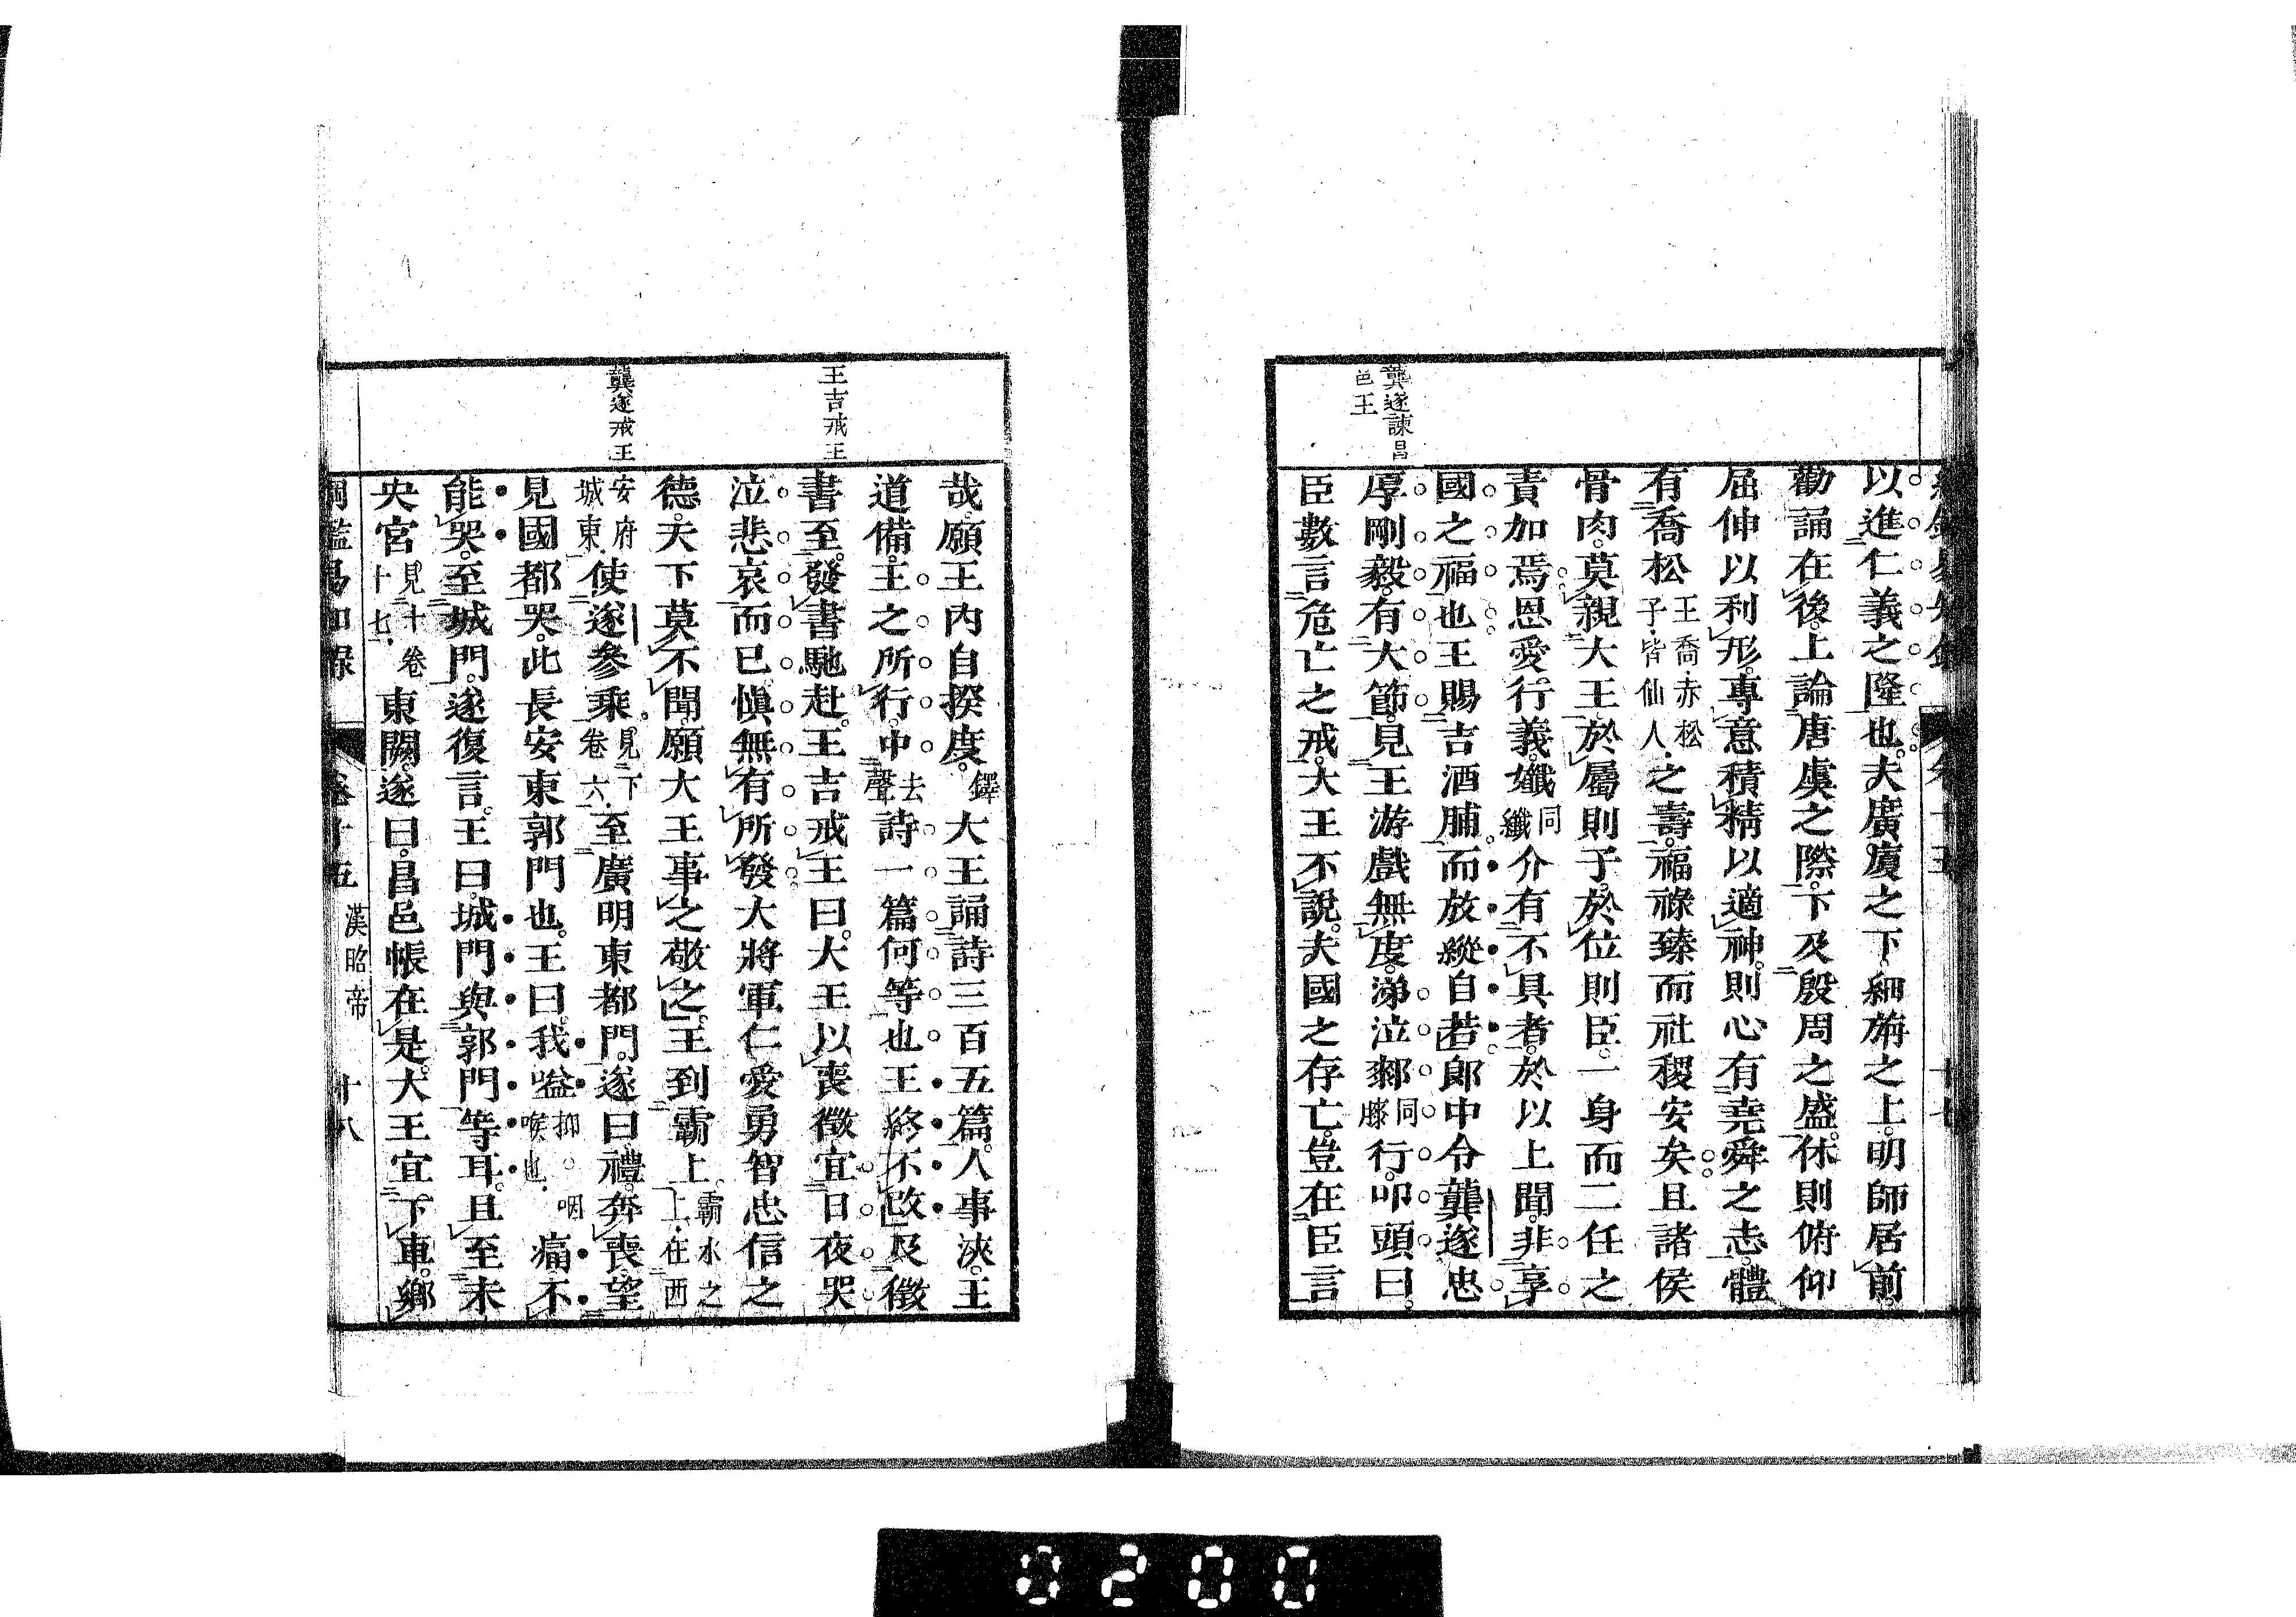 以進仁義之隆也夫廣廈之下細旃之上明師居前
勸誦在後上論唐虞之際下及殷周之盛休則俯仰
屈伸以利形專意積精以適神則心有堯舜之志體
有喬松王喬赤松子皆仙人之壽福祿臻而社稷安矣且諸侯
骨肉莫親大王於屬則子於位則臣一身而二任之
責加焉恩愛行義孅同纖介有不具者於以上聞非享
國之福也王賜吉酒脯而放縱自若郎中令龔遂忠
龔遂諫昌
邑王
厚剛毅有大節見王游戲無度涕泣厀同膝行叩頭曰
臣數言危亡之戒大王不說夫國之存亡豈在臣言
哉願王內自揆度鐸大王誦詩三百五篇人事浹王
道備王之所行中去聲詩一篇何等也王終不改及徵
王吉戒王
書至發書馳赴王吉戒王曰大王以喪徵宜日夜哭
泣悲哀而已愼無有所發大將軍仁愛勇智忠信之
德天下莫不聞願大王事之敬之王到霸上霸水之上在西
龔遂戒王
安府城東使遂參乘見下卷六至廣明東都門遂曰禮奔喪望
見國都哭此長安東郭門也王曰我嗌抑咽喉也痛不
能哭至城門遂復言王曰城門與郭門等耳且至未
央宮見十卷十七東闕遂曰昌邑帳在是大王宜下車鄉
綱鑑易知錄 卷十五 漢昭帝 十八